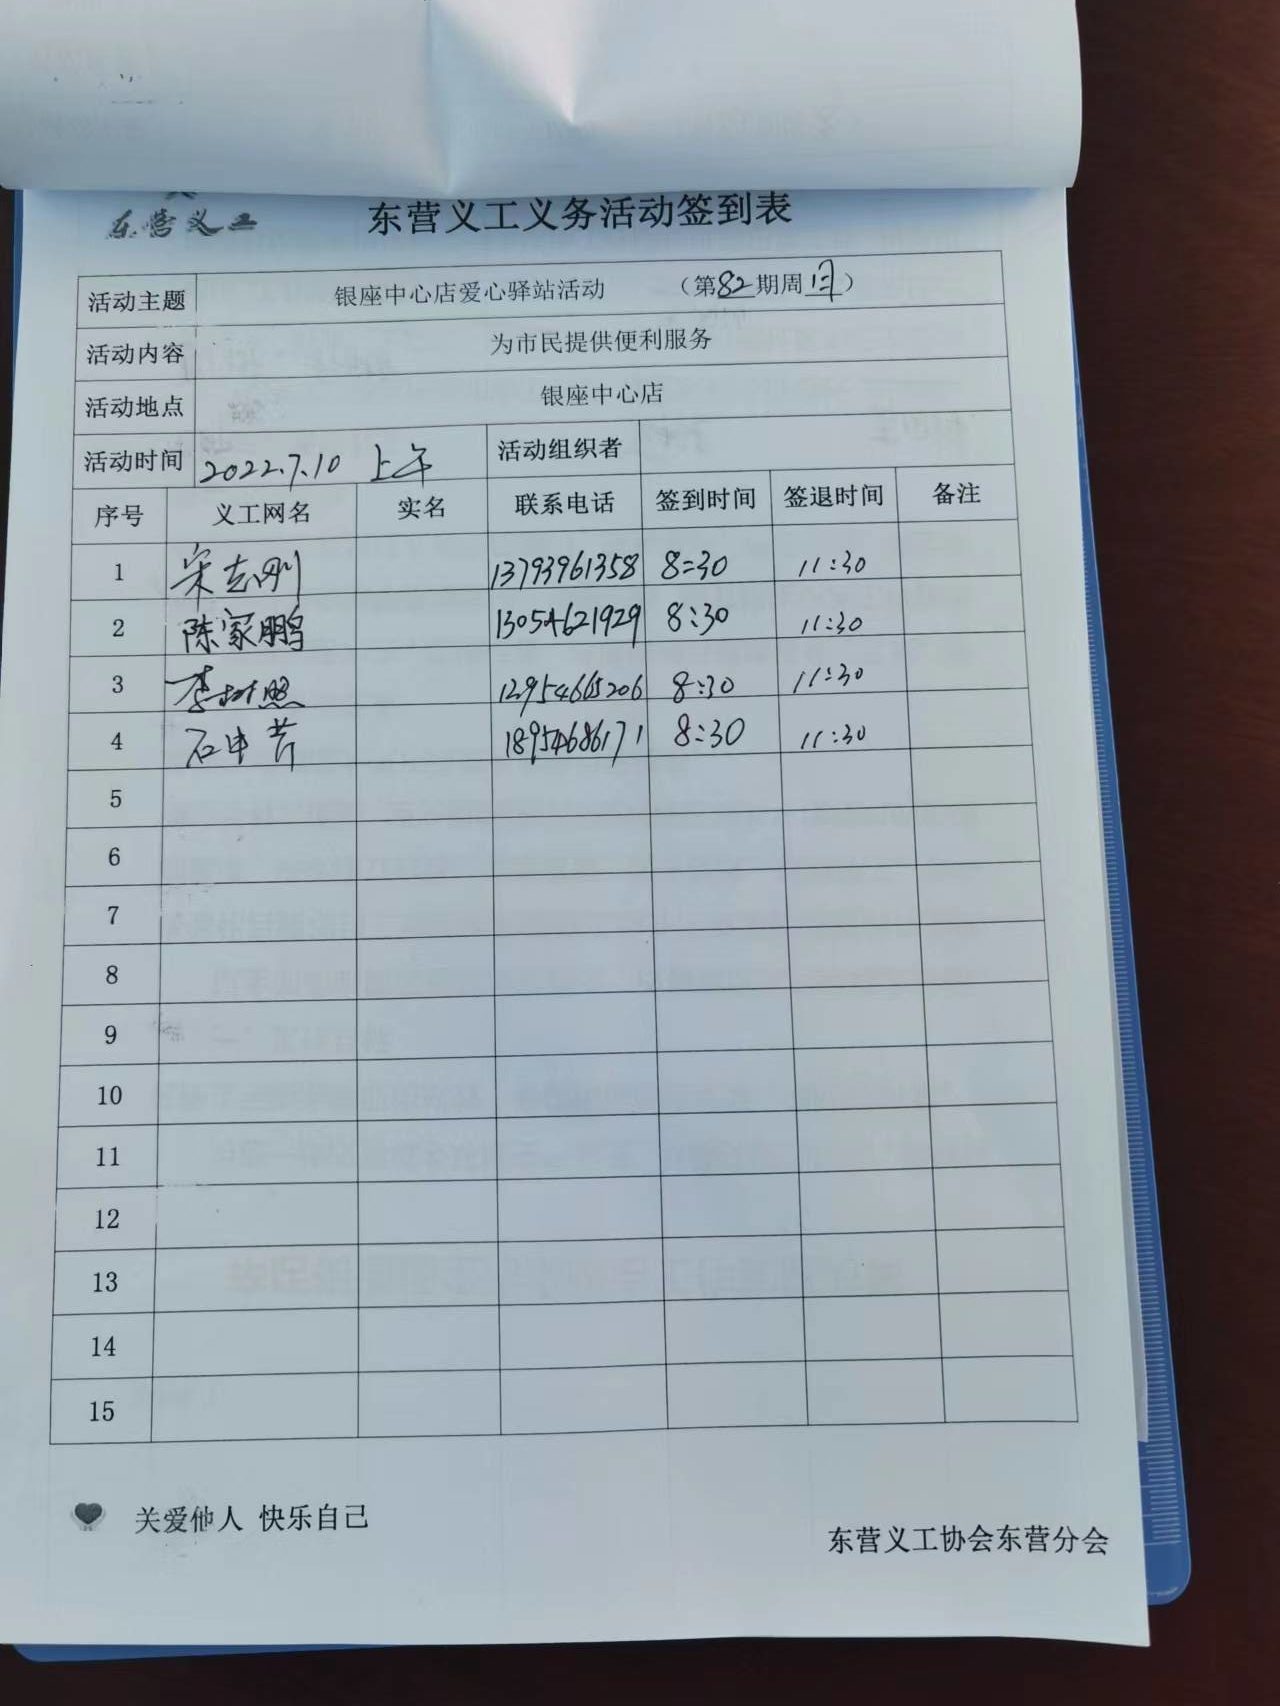 东营义工
东营义工义务活动签到表
活动主题 银座中心店爱心驿站活动 （第82期周日）
活动内容 为市民提供便利服务
活动地点 银座中心店
活动时间 2022.7.10 上午 活动组织者
序号 义工网名 实名 联系电话 签到时间 签退时间 备注
1 宋志刚 13793961358 8:30 11:30
2 陈家鹏 13054621929 8:30 11:30
3 李树照 12954665206 8:30 11:30
4 石申芳 18954686171 8:30 11:30
5
6
7
8
9
10
11
12
13
14
15
关爱他人 快乐自己
东营义工协会东营分会